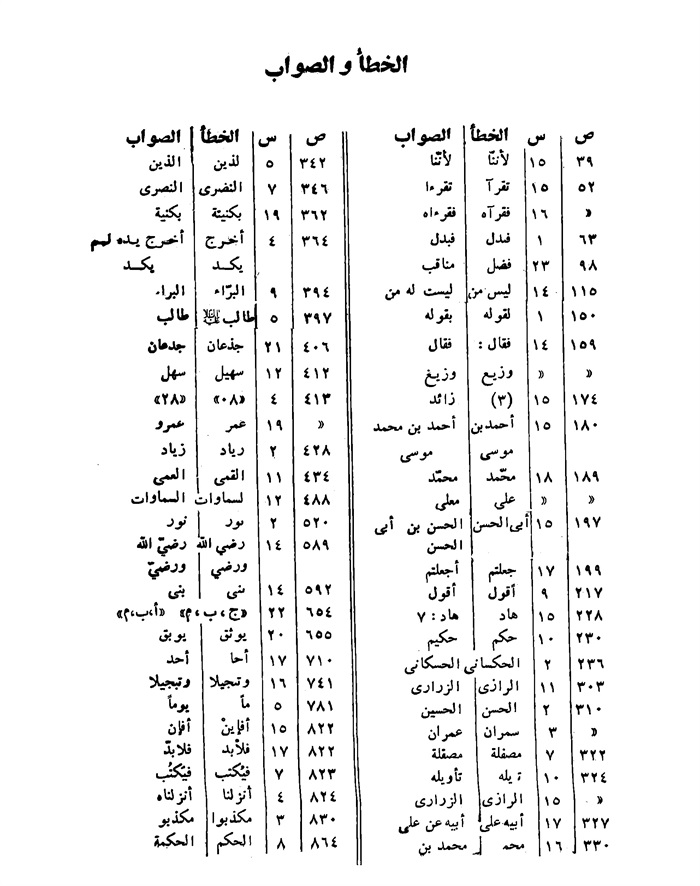 الخطأ و الصواب
ص س الخطأ الصواب
٣٩ ١٥ لأننّا لأنّنا
٥٢ ١٥ تقرآ تقرءا
« ١٦ فقرآه فقرءاه
٦٣ ١ فدل فبدل
٩٨ ٢٣ فضل مناقب
١١٥ ١٤ ليس من ليست له من
١٥٠ ١ لقوله بقوله
١٥٩ ١٤ فقال : فقال
« « وزيع وزيغ
١٧٤ ١٥ (٣) زائد
١٨٠ ١٥ أحمدبن أحمد بن محمد
موسى موسى
١٨٩ ١٨ محّمد محمّد
« « على معلى
١٩٧ ١٥ أبى الحسن الحسن بن أبى
الحسن
١٩٩ ١٧ جعلتم أجعلتم
٢١٧ ٩ أقول أقول
٢٢٨ ١٥ هاد هاد: ٧
٢٣٠ ١٠ حكم حكيم
٢٣٦ ٢ الحكسانى الحسكانى
٣٠٣ ١١ الرازى الزرارى
٣١٠ ٢ الحسن الحسين
« ٣ سمران عمران
٣٢٢ ٧ مصفلة مصقلة
٣٢٤ ١٠ يله تأويله
« ١٥ الرازى الزرارى
٣٢٧ ١٧ أبيه على أبيه عن على
٣٣٠ ١٦ محه محمد بن
ص س الخطأ الصواب
٣٤٢ ٥ لذين الذين
٣٤٦ ٧ النضرى النصرى
٣٦٢ ١٩ بكنيئة بكنية
٣٦٤ ٤ أخرج أخرج يده لم
يكد يكد
٣٩٤ ٩ البرّاء البراء
٣٩٧ ٥ طالب طالب
٤٠٦ ٢١ جذعان جدعان
٤١٢ ١٢ سهيل سهل
٤١٣ ٤ «٠٨» «٢٨»
« ١٩ عمر عمرو
٤٢٨ ٢ رياد زياد
٤٣٤ ١١ القمى العمى
٤٨٨ ١٢ لسماوات السماوات
٥٢٠ ٢ نور نور
٥٨٩ ١٤ رضي الله رضيّ الله
ورضي ورضيّ
٥٩٢ ١٤ بنى
٦٥٤ ٢٢ «ج ، ب ، م» «أ ، ب ، م»
٦٥٥ ٢٠ يوثق يوبق
٧١٠ ١٧ أحا أحد
٧٤١ ١٦ وتجيلا وتبجيلا
٧٨١ ٥ ماً يوماً
٨٢٢ ١٥ أفإينْ أفإن
٨٢٢ ١٧ فلأبد فلابدّ
٨٢٣ ٧ فيُكتب فيَكتُب
٨٢٤ ٤ أنزلنا أنزلناه
٨٣٠ ٣ مكذبوا مكذبو
٨٦٤ ٨ الحكم الحكمة